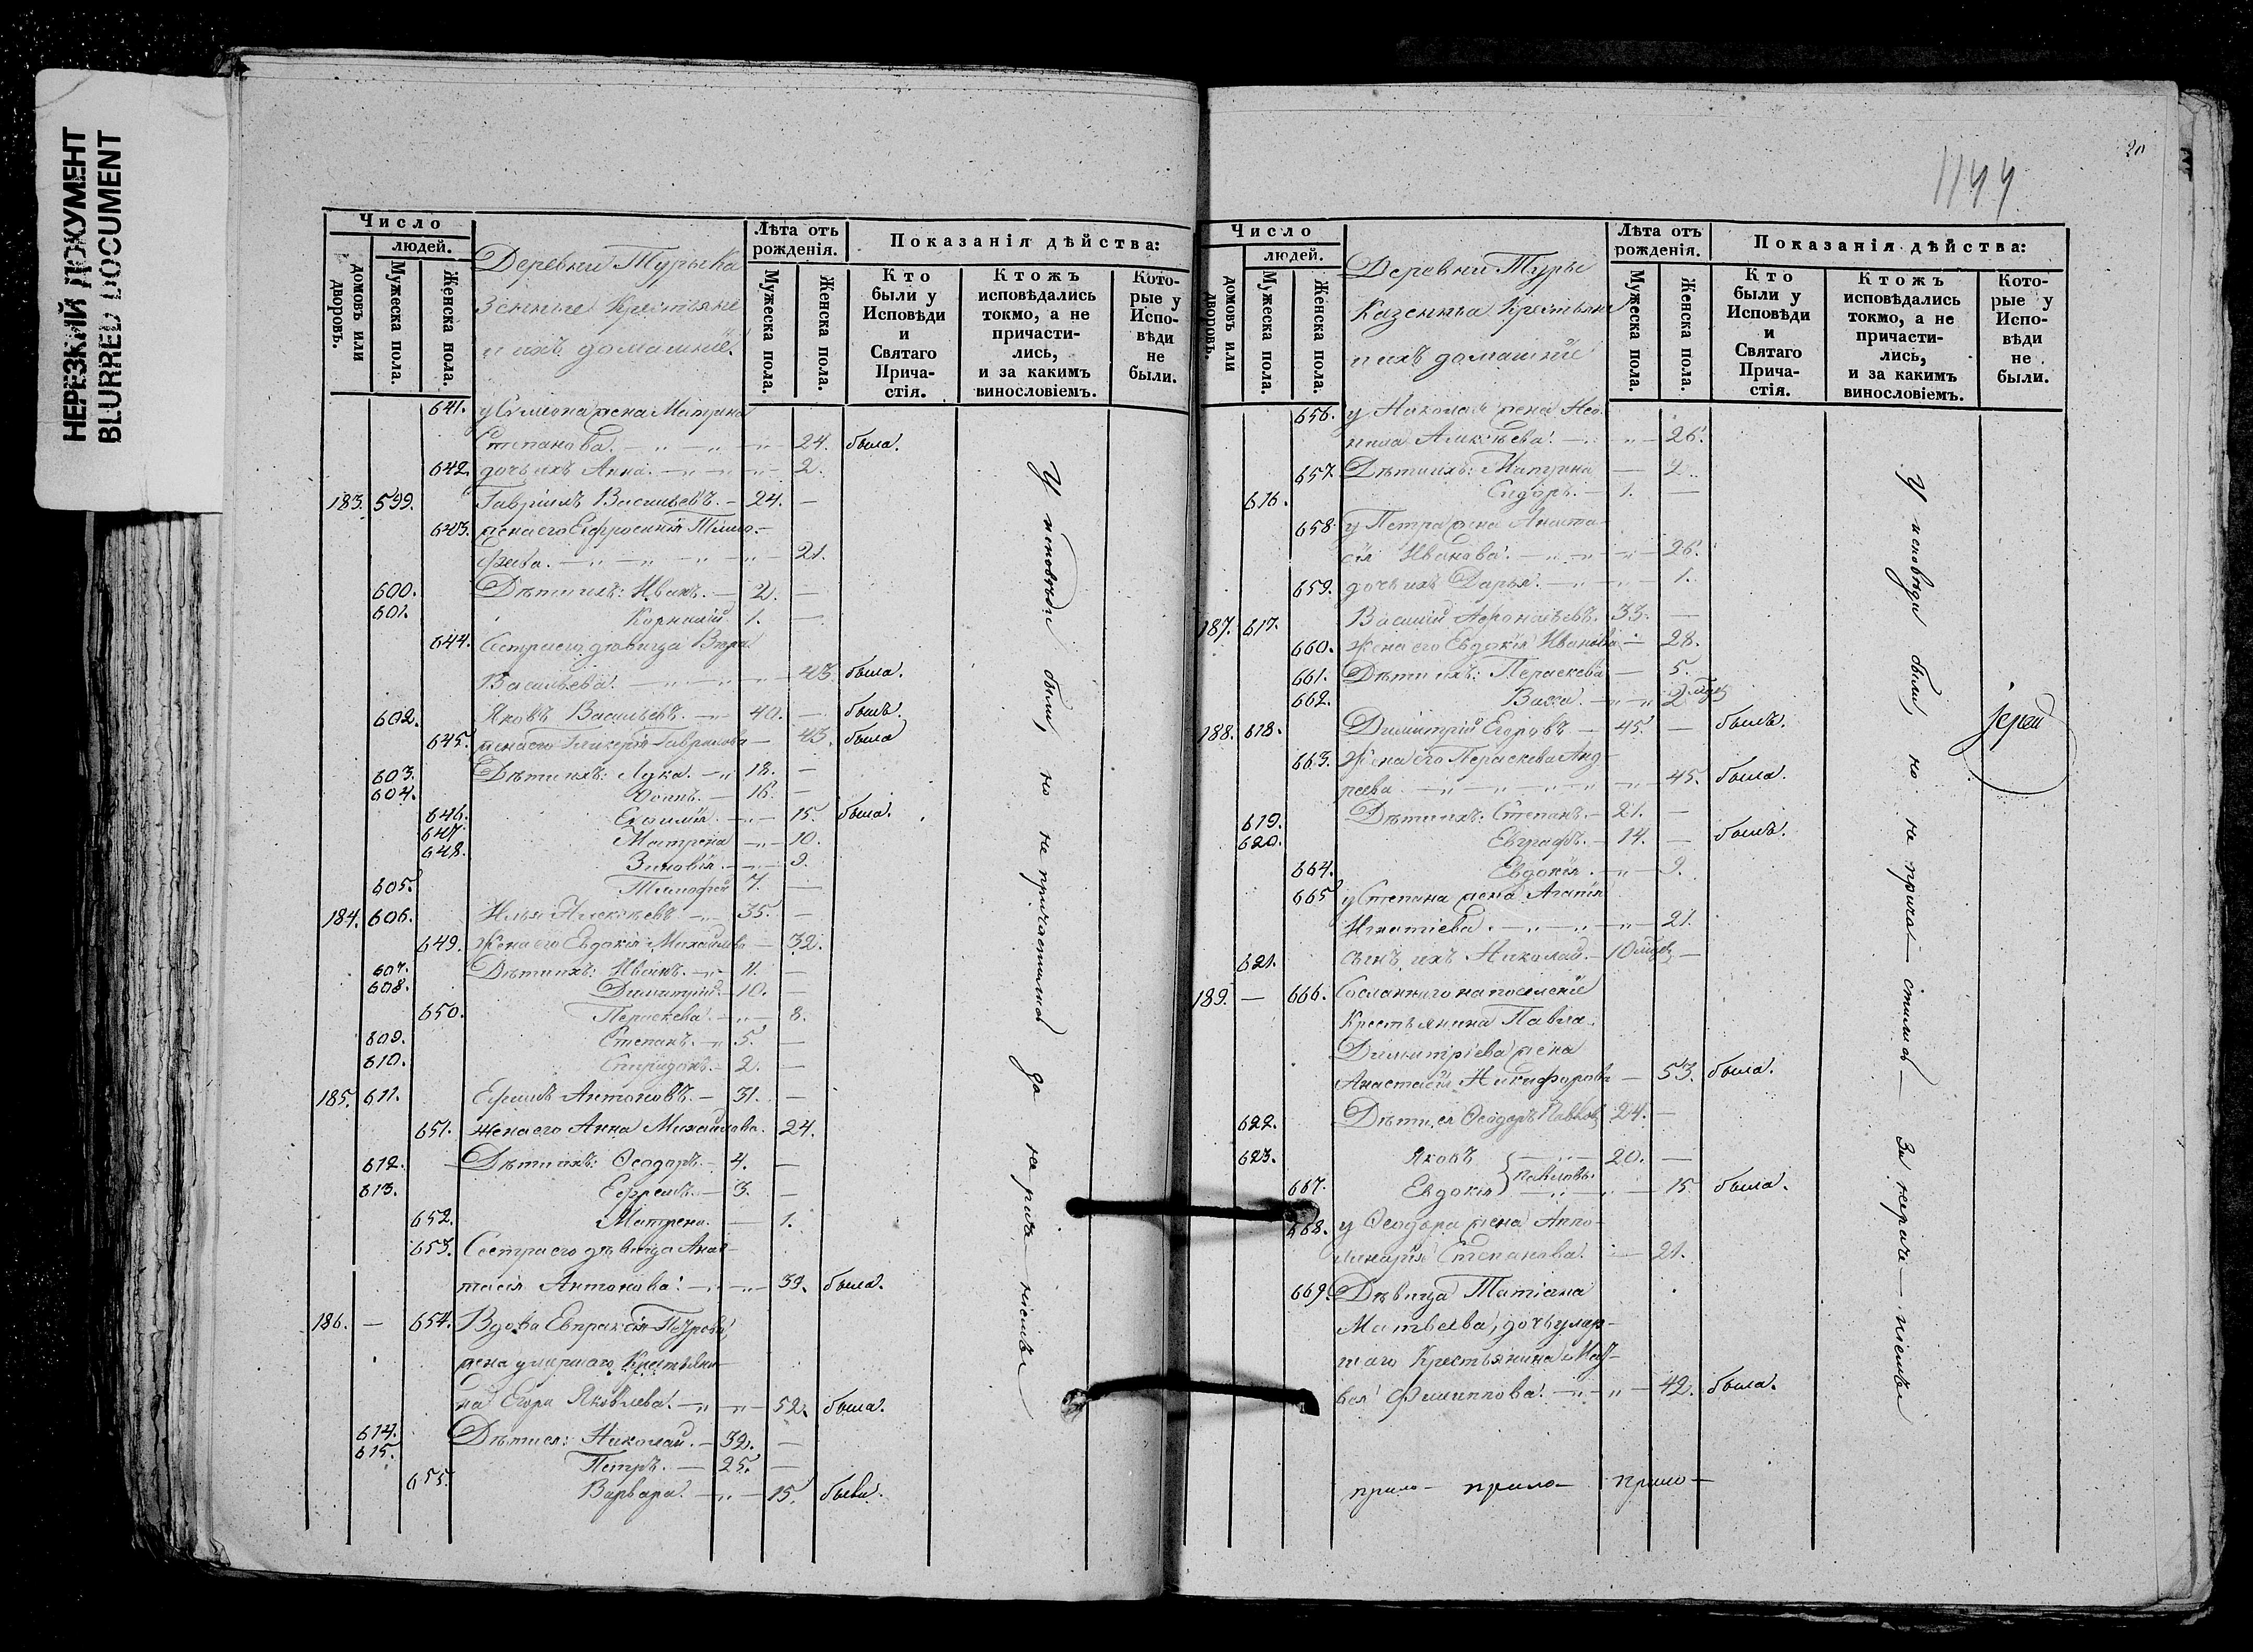 НЕРЕЗКИЙ ДОКУМЕНТ
BLURRED DOCUMENT
Число
людей.
домовъ или дворовъ.
Мужеска пола.
Женска пола.
Деревни Туры Ка
зенные крестьяне
и ихъ домашніе.
Лѣта отъ рожденія.
Мужеска пола.
Женска пола.
Показанія дѣйства:
Кто были у Исповѣди и Святаго Прича-стія.
Ктожъ исповѣдались токмо, а не причасти-лись, и за какимъ винословіемъ.
Кото-рые у Испо-вѣди не были.
641. у Симеона жена Матрина
Степанова. 24. была.
642. дочь ихъ Анна. 2.
183. 599. Гавріилъ Васильевъ. 24.
643. жена его Евфросинія Тимо-
феева. 21.
600. Дѣти ихъ: Иванъ. 2.
601. Корнилій 1.
644. Сестра его дѣвица Вѣра
Васильева. 43. была.
602. Яковъ Васильевъ. 40. былъ.
645. жена его Гликерія Гаврилова 43. была
603. Дѣти ихъ: Лука. 18.
604. 16.
646. 15. была.
647. Матрена 10.
648. Зиновія. 9.
605. Тимофей 7.
184. 606. Илья Алексѣевъ 35.
649. Жена его Евдокія Михайлова 32.
607. Дѣти ихъ: Иванъ. 11.
608. Димитрій. 10.
650. Параскева. 8.
609. Степанъ. 5.
610. Спиридонъ. 2.
185. 611. Ефимъ Антоновъ. 31.
651. жена его Анна Михайлова. 24.
612. Дѣти ихъ: Ѳеодоръ. 4.
613. Ефремъ. 3.
652. Матрена. 1.
653. Сестра его дѣвица Анас-
тасія Антонова. 39. была.
186. — 654. Вдова Евпраксія Петрова,
жена умершаго крестьяни-
на Егора Яковлева. 52. была.
614. Дѣти ея: Николай. 32.
615. Петръ. 25.
655. Варвара. 15. была.
У исповѣди были, но не причастились за нерачи-тельствомъ
1144
20
Число
людей.
домовъ или дворовъ.
Мужеска пола.
Женска пола.
Деревни Туры
Казенные крестьяне
и ихъ домашніе
Лѣта отъ рожденія.
Мужеска пола.
Женска пола.
Показанія дѣйства:
Кто были у Исповѣди и Святаго Прича-стія.
Ктожъ исповѣдались токмо, а не причасти-лись, и за какимъ винословіемъ.
Кото-рые у Испо-вѣди не были.
656. у Николая жена Нео-
нила Алексѣева. 26.
657. Дѣти ихъ: Матрина 2.
616. Сидоръ. 1.
658. у Петра жена Анаста-
сія Иванова. 26.
659. дочь ихъ Дарья. 1.
187. 617. Василій Афонасьевъ. 33.
660. Жена его Евдокія Иванова 28.
661. Дѣти ихъ: Параскева 5.
662. Васса. 2
188. 618. Димитрій Егоровъ 45. былъ.
663. Жена его Параскева Анд-
реева 45. была.
619. Дѣти ихъ: Степанъ. 21.
620. Евграфъ. 14. былъ.
664. Евдокія. 9.
665 у Степана жена Агапія
Игнатіева. 21.
621. сынъ ихъ Николай. 10
189. — 666. Сосланнаго на поселеніе
Крестьянина Павла
Димитріева жена
Анастасія Никифорова 53. была.
622. Дѣти ея Ѳеодоръ Павлов 24.
623. Яковъ 20.
Павловы.
667. Евдокія 15 была.
668. у Ѳеодора жена Аппо-
линарія Степанова. 21.
669. Дѣвица Татіана
Матвѣева, дочь умер-
шаго Крестьянина Мат-
вея Филиппова. 42. была.
У исповѣди были, но не прича-стились За нерачи-тельствомъ
Іерей